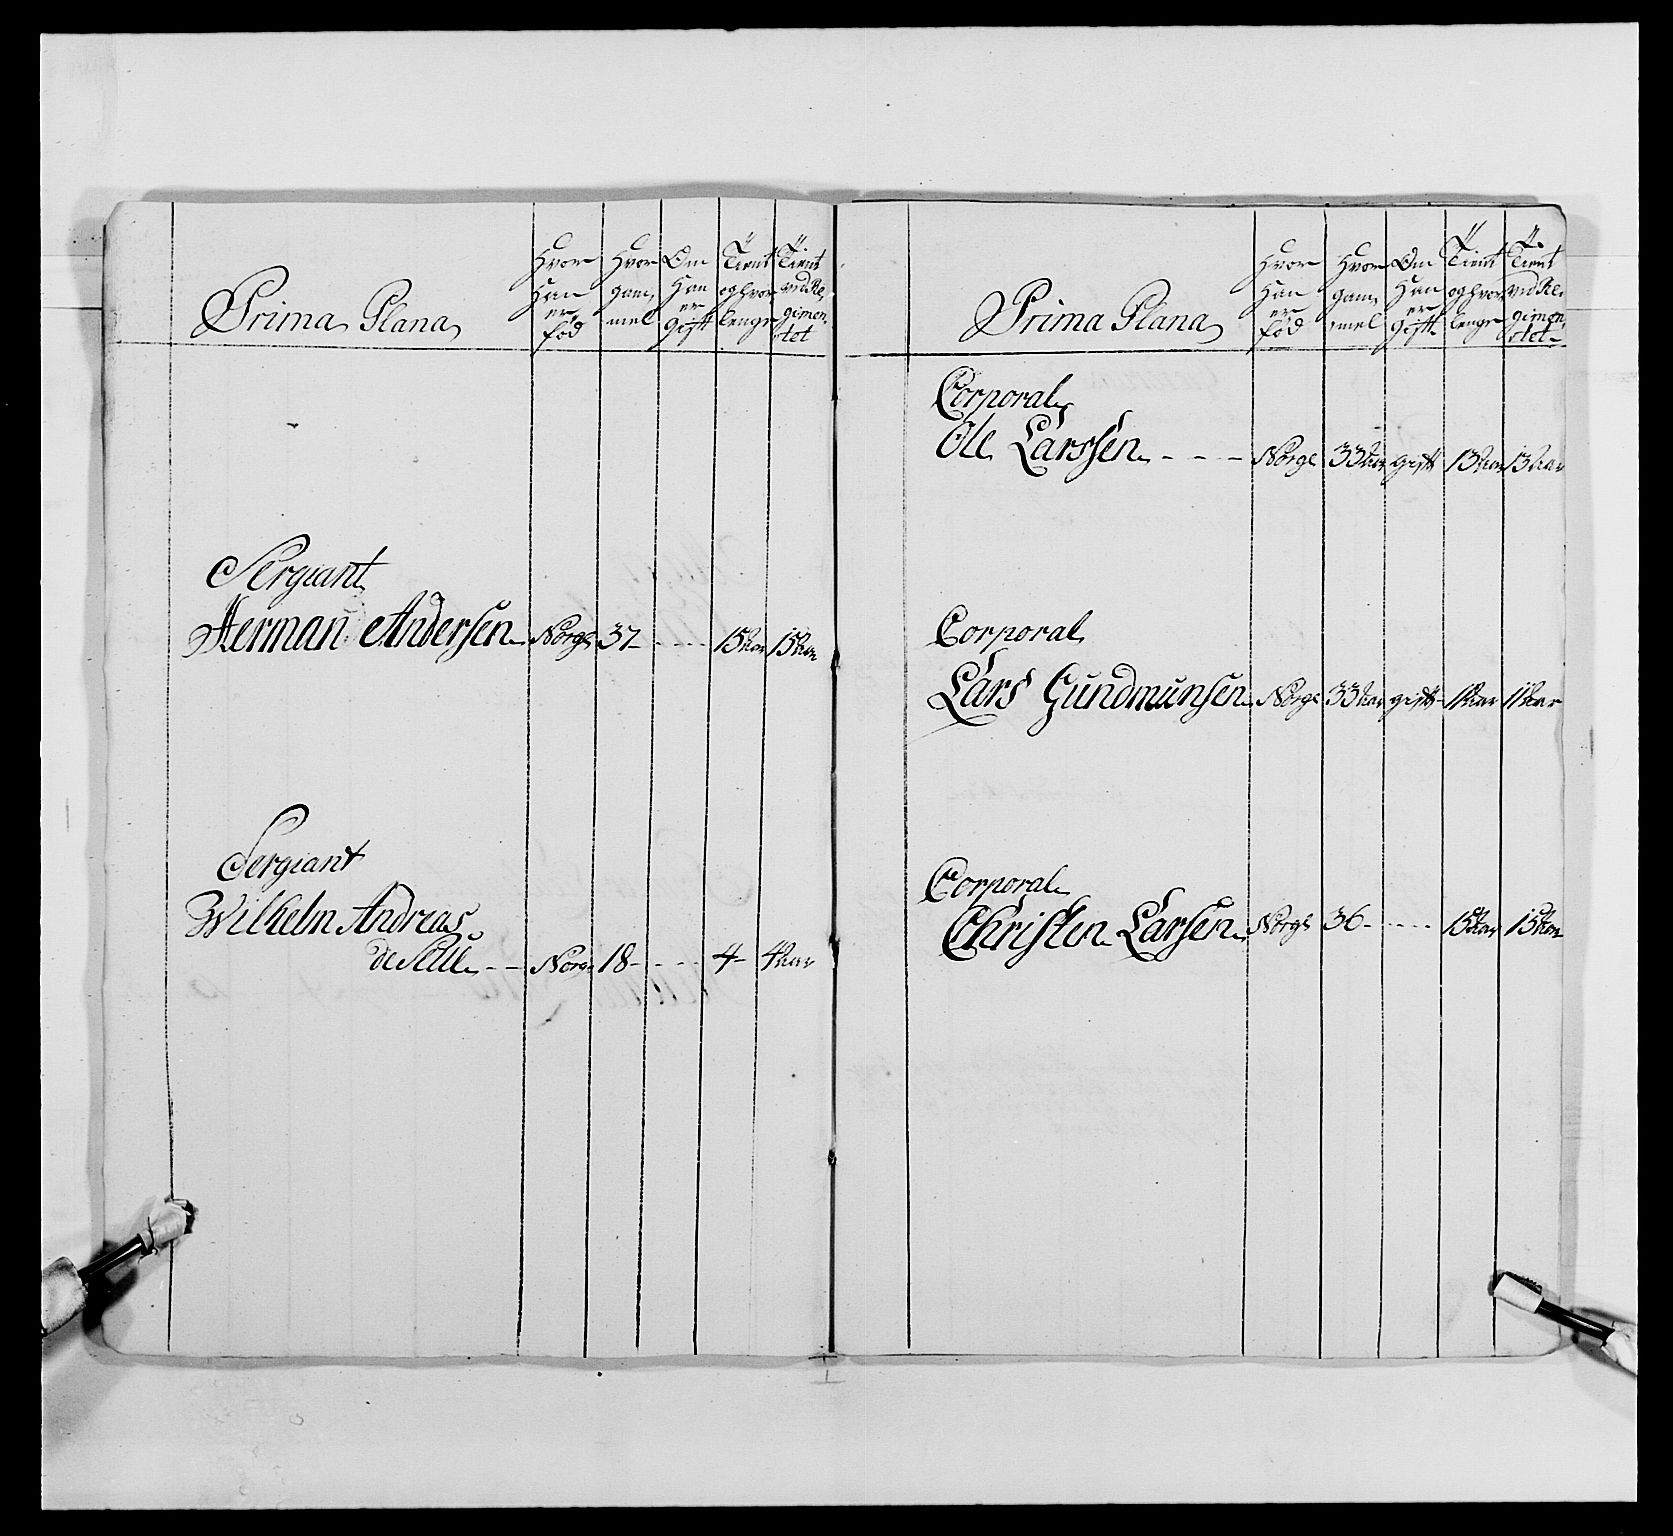 Prima Plana
Hvor Han er född
Hvor gam, mel
Om Han er gift
Tient og hvor lenge
Tient vid Re, gimen, tet
Sergiant
Herman Andersen Norge 37 - - - 15 Aar 15 Aar
Sergiant
Wilhelm Andreas
- - Norge 18 - - - 4 - 4 Aar
Prima Plana
Hvor Han er född
Hvor gam, mel
Om Han er gift
Tient og hvor lenge
Tient vid Re, gimen, tet
Corporal
Ole Larssen - - - Norge 33 Aar gift 13 Aar 13 Aar
Corporal
Lars Gundmunsen Norge 33 Aar gift 11 Aar 11 Aar
Corporal
Christen Larsen Norge 36 - - - - 15 Aar 15 Aar